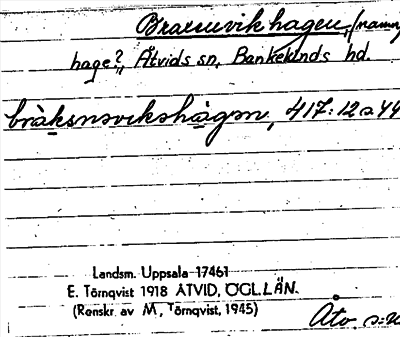 Braxsnvikhagen, (namn
hage?, Åtvids sn, Bankekinds hd.
bràksnsvikshàgən, 417:12 o. 44
Landsm. Uppsala 17461
E. Törnqvist 1918 ÅTVID, ÖGL. LÄN.
(Renskr. av M. Törnqvist, 1945)
Åtv s:n